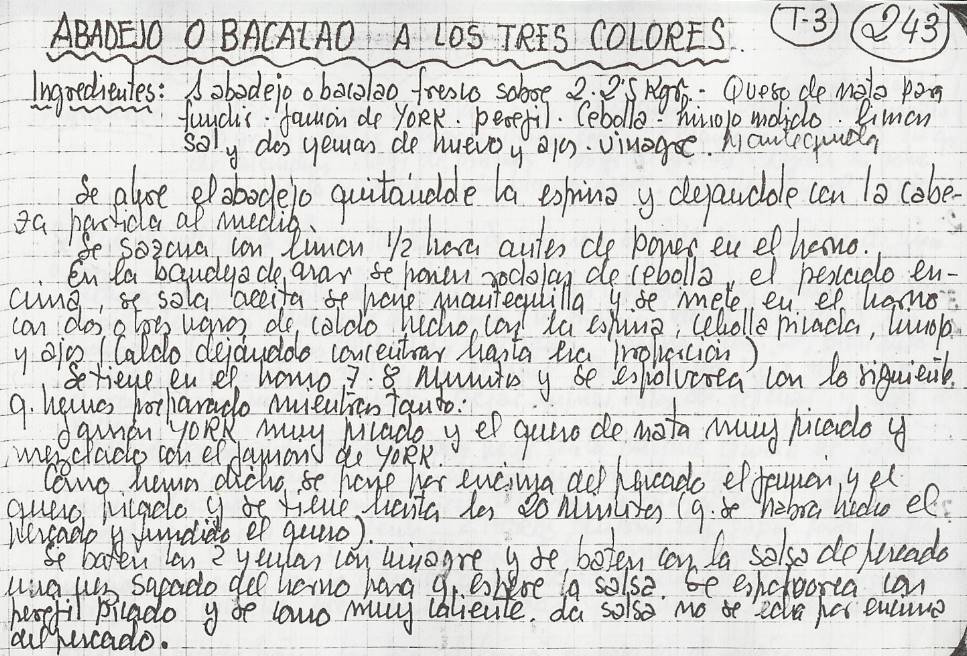 ABADEJO O BACALAO A LOS TRES COLORES. (T-3) 243
Ingredientes: 1 abadejo o bacalao fresco sobre 2-2'5 Kgr. - Queso de nata para
fundir. jamón de YORK. perejil. Cebolla. hinojo molido. limón
Sal y dos yemas de huevo y ajos. vinagre. Mantequilla
Se abre el abadejo quitandole la espina y dejandole con la cabe-
za partida al medio.
Se sazona con limón 1/2 hora antes de poner en el horno.
En la bandeja de asar se ponen rodajas de cebolla, el pescado en-
cima, se sala aceita se pone mantequilla y se mete en el horno
con dos o tres vasos de caldo hecho con la espina, cebolla picada, hinojo
y ajos (Caldo dejándolo concentrar hasta esa proporción)
Se tiene en el horno 7-8 Minutos y se espolvorea con lo siguiente
q. hemos preparado mientras tanto:
Jamón YORK muy picado y el queso de nata muy picado y
mezclado con el jamón de YORK.
Como hemos dicho, se pone por encima del pescado el jamón, y el
queso picado y se tiene hasta los 20 Minutos (q. se habrá hecho el
pescado y fundido el queso).
Se baten las 2 yemas con vinagre y se baten con la salsa de pescado
una vez sacado del horno para q. espese la salsa. Se espolvorea con
perejil picado y se come muy caliente. La salsa no se echa por encima
del pescado.